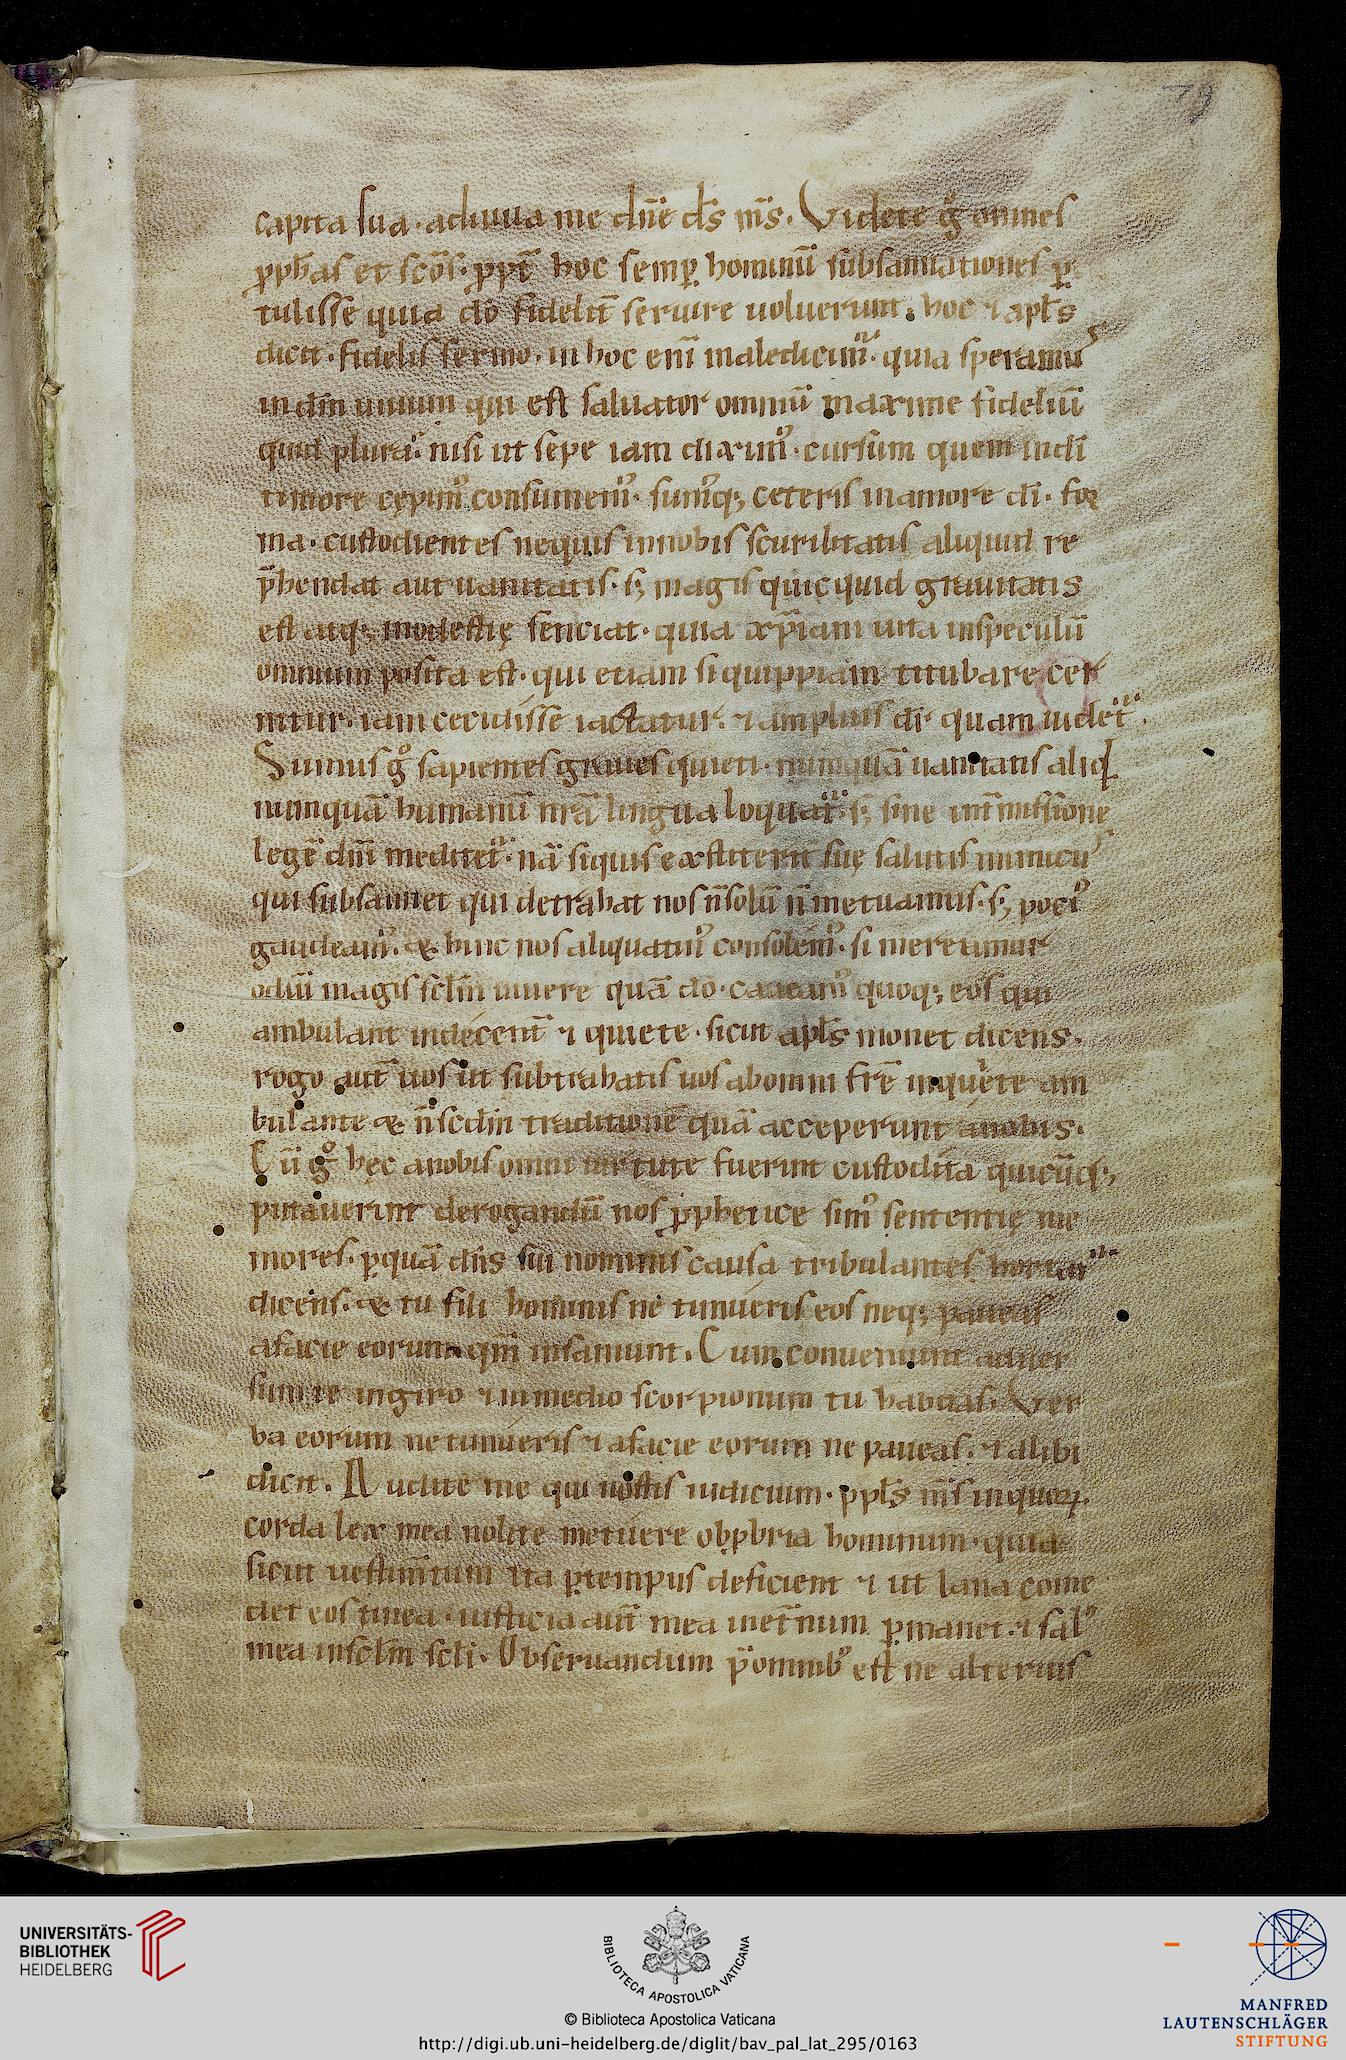 79
capita sua. adiuua me dn̄e ds̄ ms̄. Videte g̊ omnes
ꝓph̄as et sc̄os. ꝓpt̄ hoc semꝑ hominū subsannationes ꝑ
tulisse quia dō fidelit̄ seruire uoluerunt. hoc ⁊ apl̄s
dicit. fidelis sermo. in hoc eni̅ maledicimᷓ. quia speramuˢ
in dm̄ uiuum qui est saluator omniū maxime fideliū
quid plura. nisi ut sepe iam diximꝰ. cursum quem in di̅
timore cępimꝰ consumemꝰ. sumꝰq; ceteris in amore di̅. foꝝ
ma. custodientes nequis in nobis scurilitatis aliquid re
p̄hendat aut uanitatis. s; magis quicquid grauitatis
est atq; modestię sentiat. quia xp̄iani uita in speculū
omnium posita est. qui etiam si quippiam titubare cer
nitur. iam cecidisse iactatur. ⁊ amplius di̅ quam uidet᷑.
Simus g̊ sapientes graues quieti. nunquā uanitatis aliqd̄
nunquā humanū nr̄a lingua loquat᷑. s; sine int̄missione
legē dn̄i meditet᷑. nā siquis extiterit suę salutis inimicuˢ
qui subsannet qui detrahat nos n̄ solū n̄ metuamus. s; pociꝰ
gaudeamꝰ. & hinc nos aliquatinꝰ consolemꝰ. si mereamur
odiū magis scl̄m uiuere quā dō. caueamꝰ quoq; eos qui
ambulant indecent̄ ⁊ quiete. sicut apl̄s monet dicens.
rogo aut̄ uos ut subtrahatis uos ab omni fr̄e inquiete am
bulante & n̄ scdm̄ traditionē quā acceperunt a nobis.
Cū g̊ hęc a nobis omni uirtute fuerint custodita quicūq;
putauerint derogandū nos ꝓphetice simꝰ sententię me
mores. ꝑquā dn̄s sui nominis causa tribulantes hortat᷑
dicens. & tu fili hominis ne timueris eos neq; paueas
a facie eorum qm̄ insaniunt. Cum conueniunt aduer
sum te in giro ⁊ in medio scorpionum tu habitas. Ver
ba eorum ne timueris ⁊ a facie eorum ne paueas. ⁊ alibi
dicit. Audite me qui nostis iudicium. ppl̄s ms̄ in quoꝝ
corda lex mea nolite metuere obꝓbria hominum. quia
sicut uestim̄tum ita ꝑ tempus deficient ⁊ ut lana come
det eos tinea. iusticia aut̄ mea in et̄num ꝑmanet. ⁊ salꝰ
mea in sclm̄ scl̄i. Obseruandum p̄ omnibꝰ est ne alterius
UNIVERSITÄTS-
BIBLIOTHEK
HEIDELBERG
BIBLIOTECA APOSTOLICA VATICANA
© Biblioteca Apostolica Vaticana
http://digi.ub.uni-heidelberg.de/diglit/bav_pal_lat_295/0163
MANFRED
LAUTENSCHLÄGER
STIFTUNG